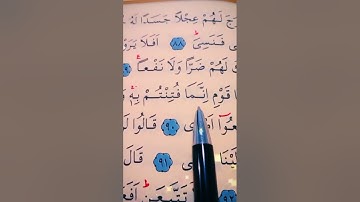 رَجَ لَهُمْ عِجْلًا جَسَدًا لَهُ
فَنَسِىَ ﴿٨٨﴾ اَفَلَا يَرَوْ
لَهُمْ ضَرًّا وَلَا نَفْعًا
قَوْمِ اِنَّمَا فُتِنْتُمْ بِهٖ
اَمْرٖى ﴿٩٠﴾ قَالُوا لَ
﴿٩١﴾ قَالَ
تَتَّبِعَنِ اَفَعَ